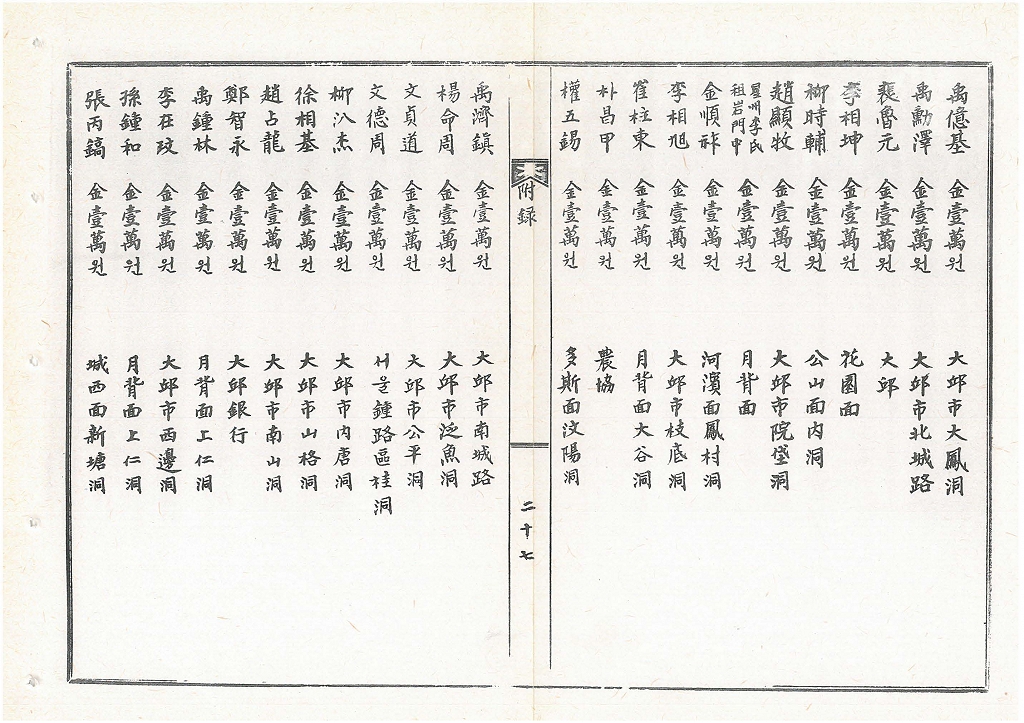 禹億基 金壹萬원 大邱市大鳳洞
禹勳澤 金壹萬원 大邱市北城路
裵魯元 金壹萬원 大邱
李相坤 金壹萬원 花園面
柳時輔 金壹萬원 公山面内洞
趙顯牧 金壹萬원 大邱市院垈洞
星州李氏
祖岩門中 金壹萬원 月背面
金 金壹萬원 河濱面鳳村洞
李相旭 金壹萬원 大邱市枝底洞
崔柱東 金壹萬원 月背面大谷洞
朴昌甲 金壹萬원 農協
權五錫 金壹萬원 多斯面汶陽洞
附録 二十七
禹濟鎭 金壹萬원 大邱市南城路
楊命周 金壹萬원 大邱市泛魚洞
文貞道 金壹萬원 大邱市公平洞
文德周 金壹萬원 서울鍾路區桂洞
柳汃杰 金壹萬원 大邱市内唐洞
徐相基 金壹萬원 大邱市山格洞
趙占龍 金壹萬원 大邱市南山洞
鄭智永 金壹萬원 大邱銀行
禹鍾林 金壹萬원 月背面上仁洞
李在玟 金壹萬원 大邱市西邊洞
孫鍾和 金壹萬원 月背面上仁洞
張丙鎬 金壹萬원 城西面新塘洞